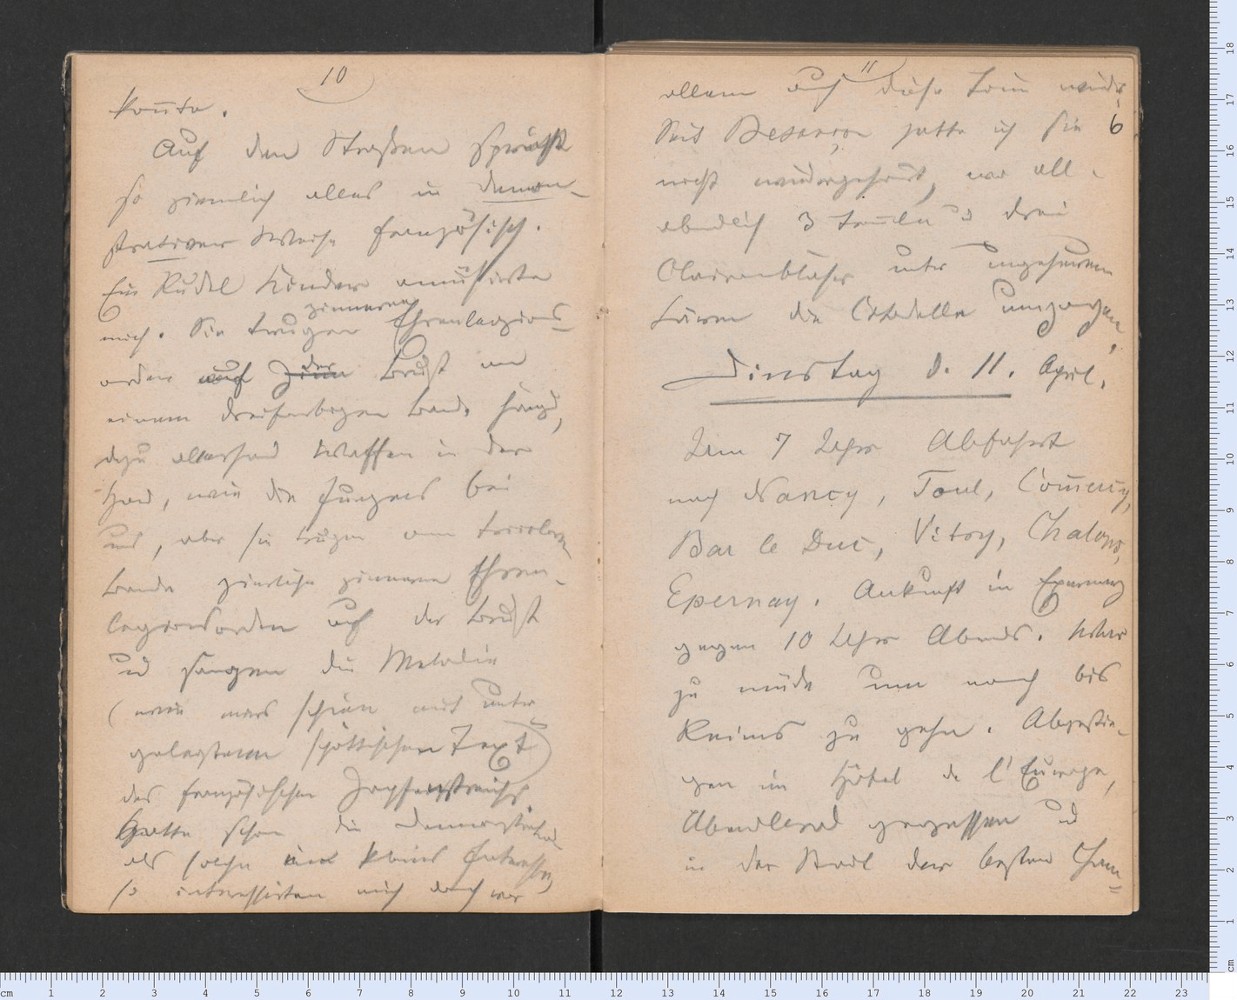 10
konnte.
Auf den Straßen spricht
so ziemlich alles in demon-
strativer Weise französisch.
Ein Rudel Kinder amüsirte
mich. Sie trugen zinnerne Ehrenlegions
orden auf der Brust an
einem dreifarbigen Bande,
dazu allerhand Waffen in der
Hand, wie die Jungens bei
uns, aber sie trugen am tricoloren
Bande zierliche zinnerne Ehren-
legionsorden auf der Brust
und sangen die Melodie
(wie mir schien mit unter
gelegtem schottischen Text)
des französischen Zapfenstreichs
Hatte schon die Demonstration
als solche kein Interesse,
so interessirten mich doch vor
11
allem auch diese Töne wieder.
6
Seit Besançon hatte ich sie
nicht wiedergehört, wo all-
abendlich 3 und drei
Claironbläser unter ungeheurem
Lärm die Citadelle umzogen.
Dinstag d. 11. April.
Um 7 Uhr Abfahrt
nach Nancy, Toul, Com̅ercy,
Bar le Duc, Vitry, Chalons,
Epernay. Ankunft in Epernay
gegen 10 Uhr Abends.
zu müde um noch bis
Reims zu gehn. Abgestie-
gen im Hôtel de l'Europe,
Abendbrod gegessen und
in der Stadt des besten Cham-